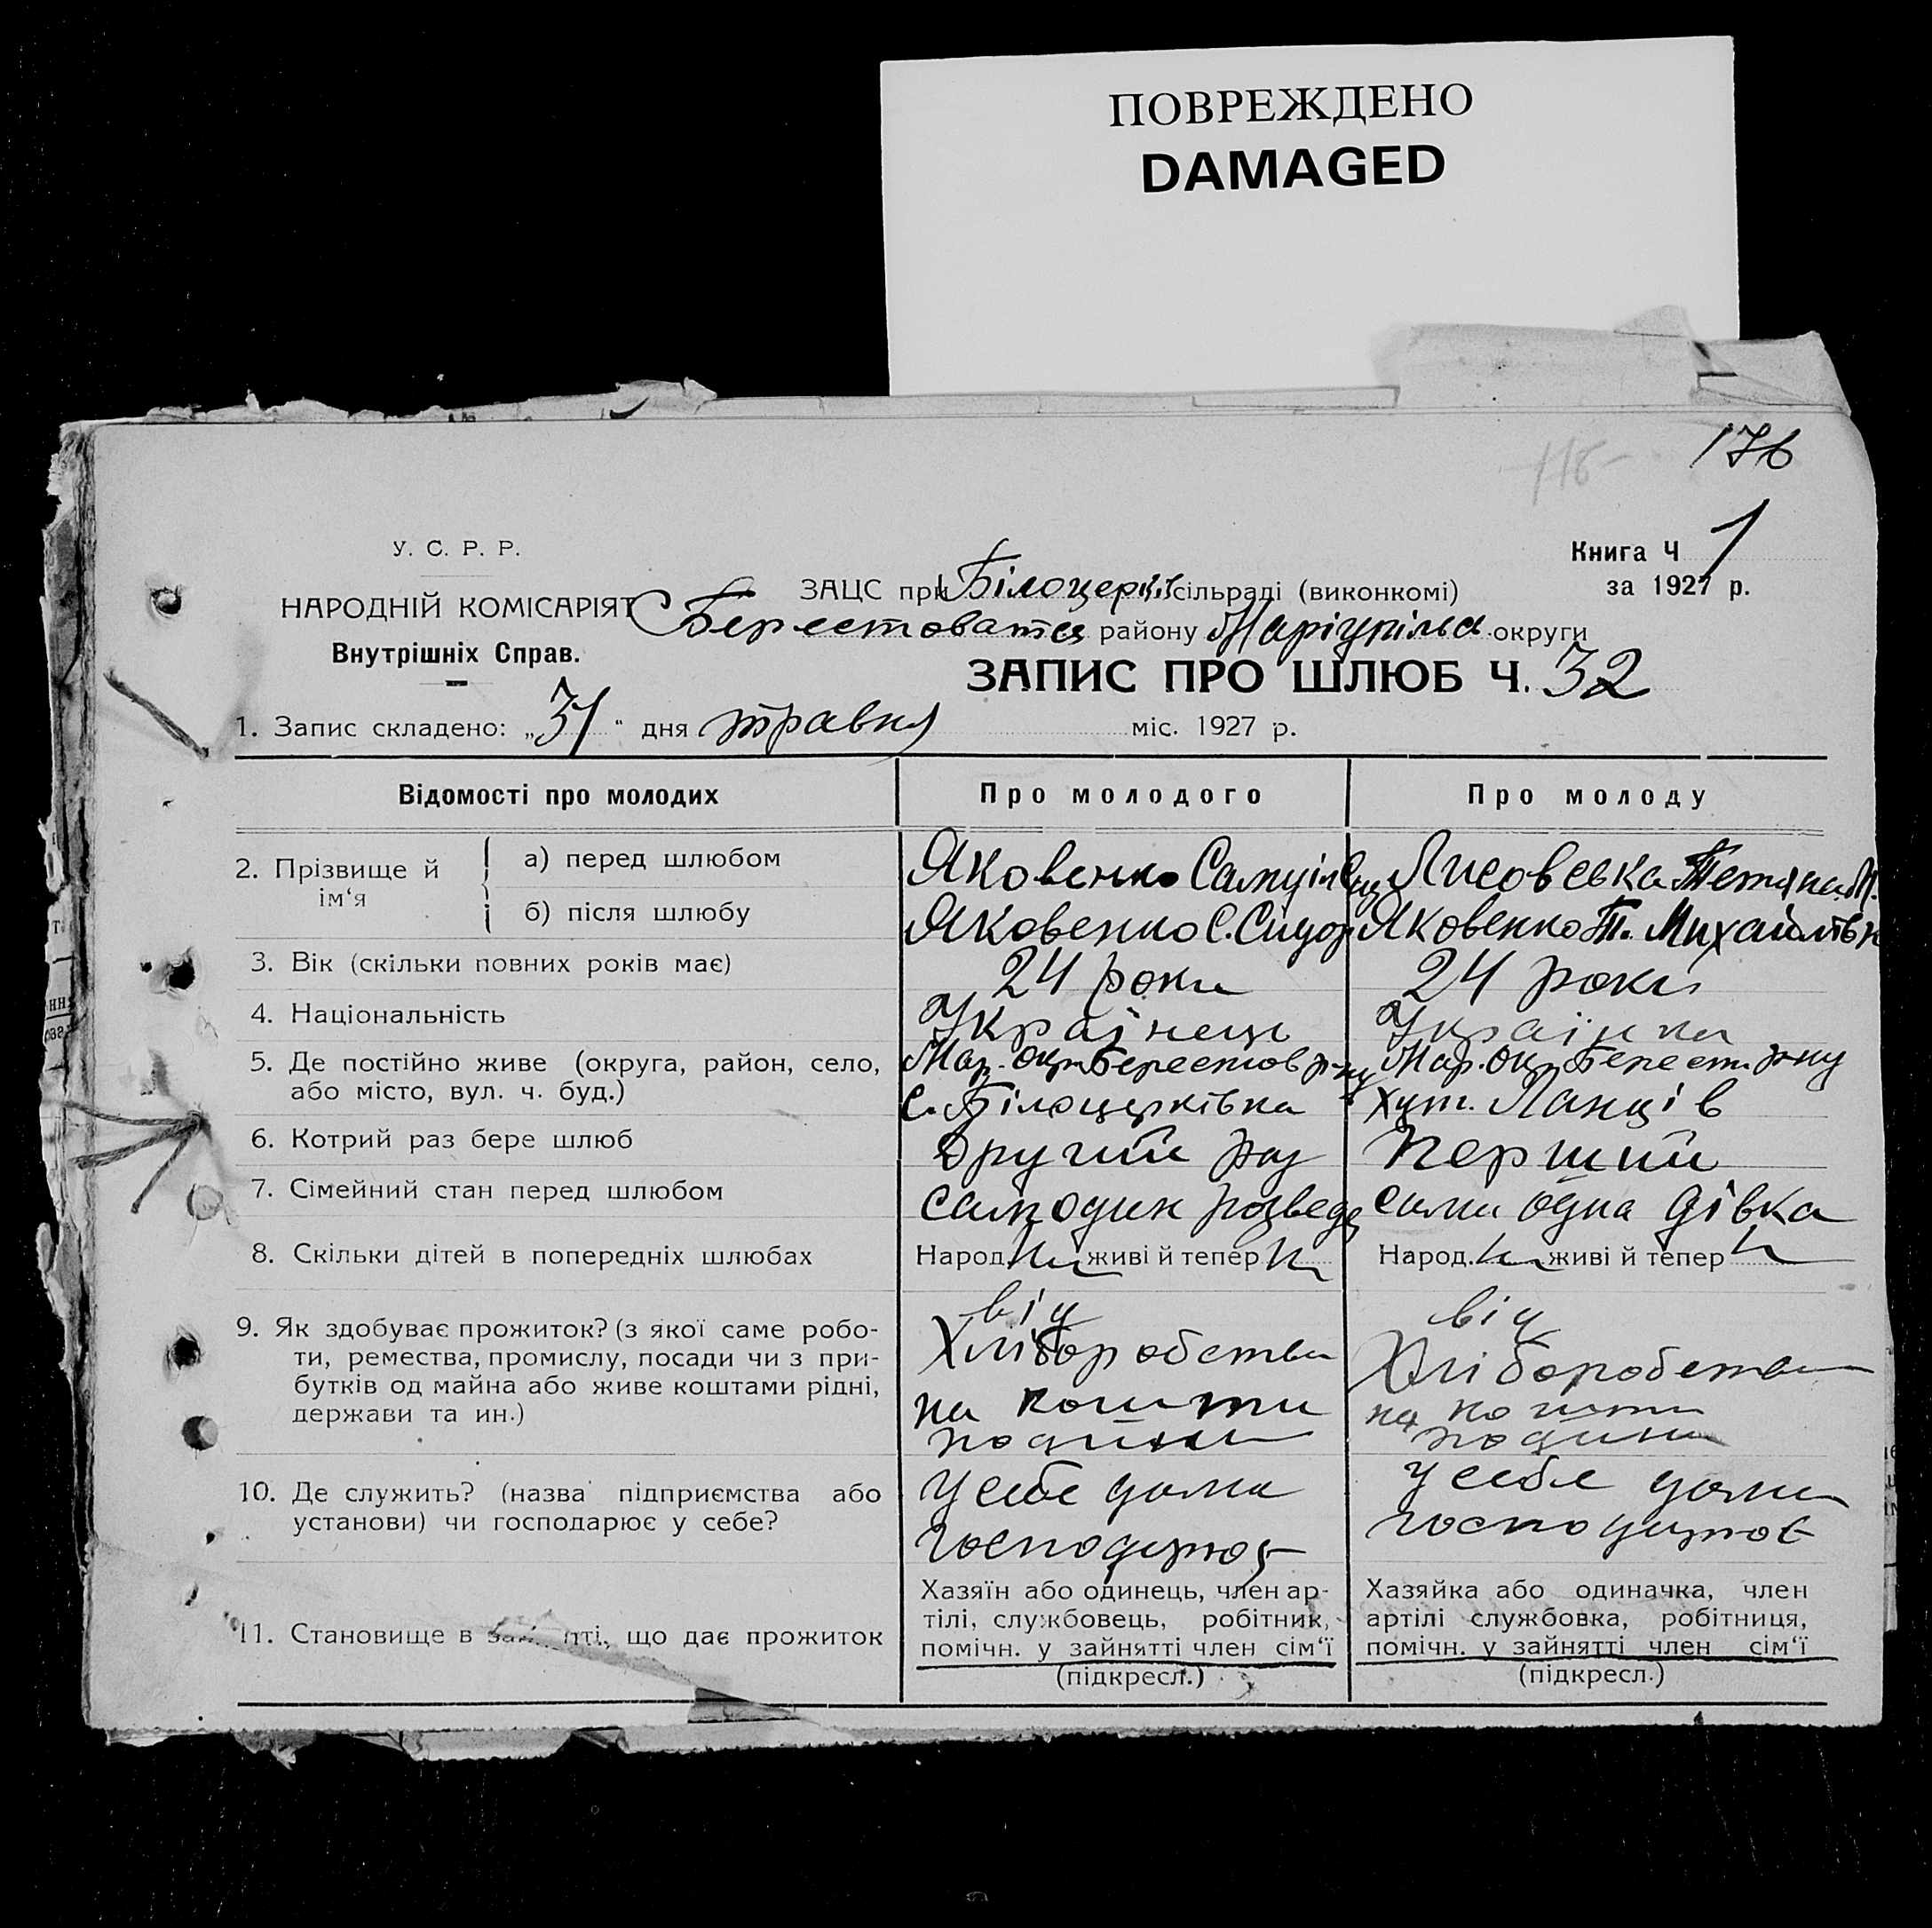 ПОВРЕЖДЕНО
DAMAGED
176
118
У. С. Р. Р.
НАРОДНІЙ КОМІСАРІЯТ
Внутрішніх Справ.
Книга Ч 1
за 1927 р.
ЗАЦС при Білоцерків сільраді (виконкомі)
Берестоват району Маріупільс округи
ЗАПИС ПРО ШЛЮБ Ч. 32
1. Запис складено: „31“ дня травня міс. 1927 р.
Відомості про молодих Про молодого Про молоду
2. Прізвище й ім‘я
а) перед шлюбом Яковенко Самуіл Лисовська Тетяна М.
б) після шлюбу Яковенко С. Сидор Яковенко Т. Михайлівн
3. Вік (скільки повних років має) 24 роки 24 роки
4. Національність Українець Українка
5. Де постійно живе (округа, район, село, Мар. окр. Берестов р-ну Мар. Окр. Берест. р-ну
або місто, вул. ч. буд.) с. Білоцерківка хут. Ланців
6. Котрий раз бере шлюб Другий раз Перший
7. Сімейний стан перед шлюбом самодин розвед сама одна дівка
8. Скільки дітей в попередніх шлюбах Народ. живі й тепер Народ. живі й тепер
9. Як здобуває прожиток? (з якої саме робо- від від
ти, ремества, промислу, посади чи з при- Хліборобства Хліборобства
бутків од майна або живе коштами рідні, на кошти на кошти
держави та ин.) родини родини
10. Де служить? (назва підприємства або у себе дома у себе дома
установи) чи господарює у себе? господарює господарює
11. Становище в що дає прожиток
Хазяїн або одинець, член ар-
тілі, службовець, робітник,
помічн. у зайнятті член сім‘ї
(підкресл.)
Хазяйка або одиначка, член
артілі службовка, робітниця,
помічн. у зайнятті член сім‘ї
(підкресл.)